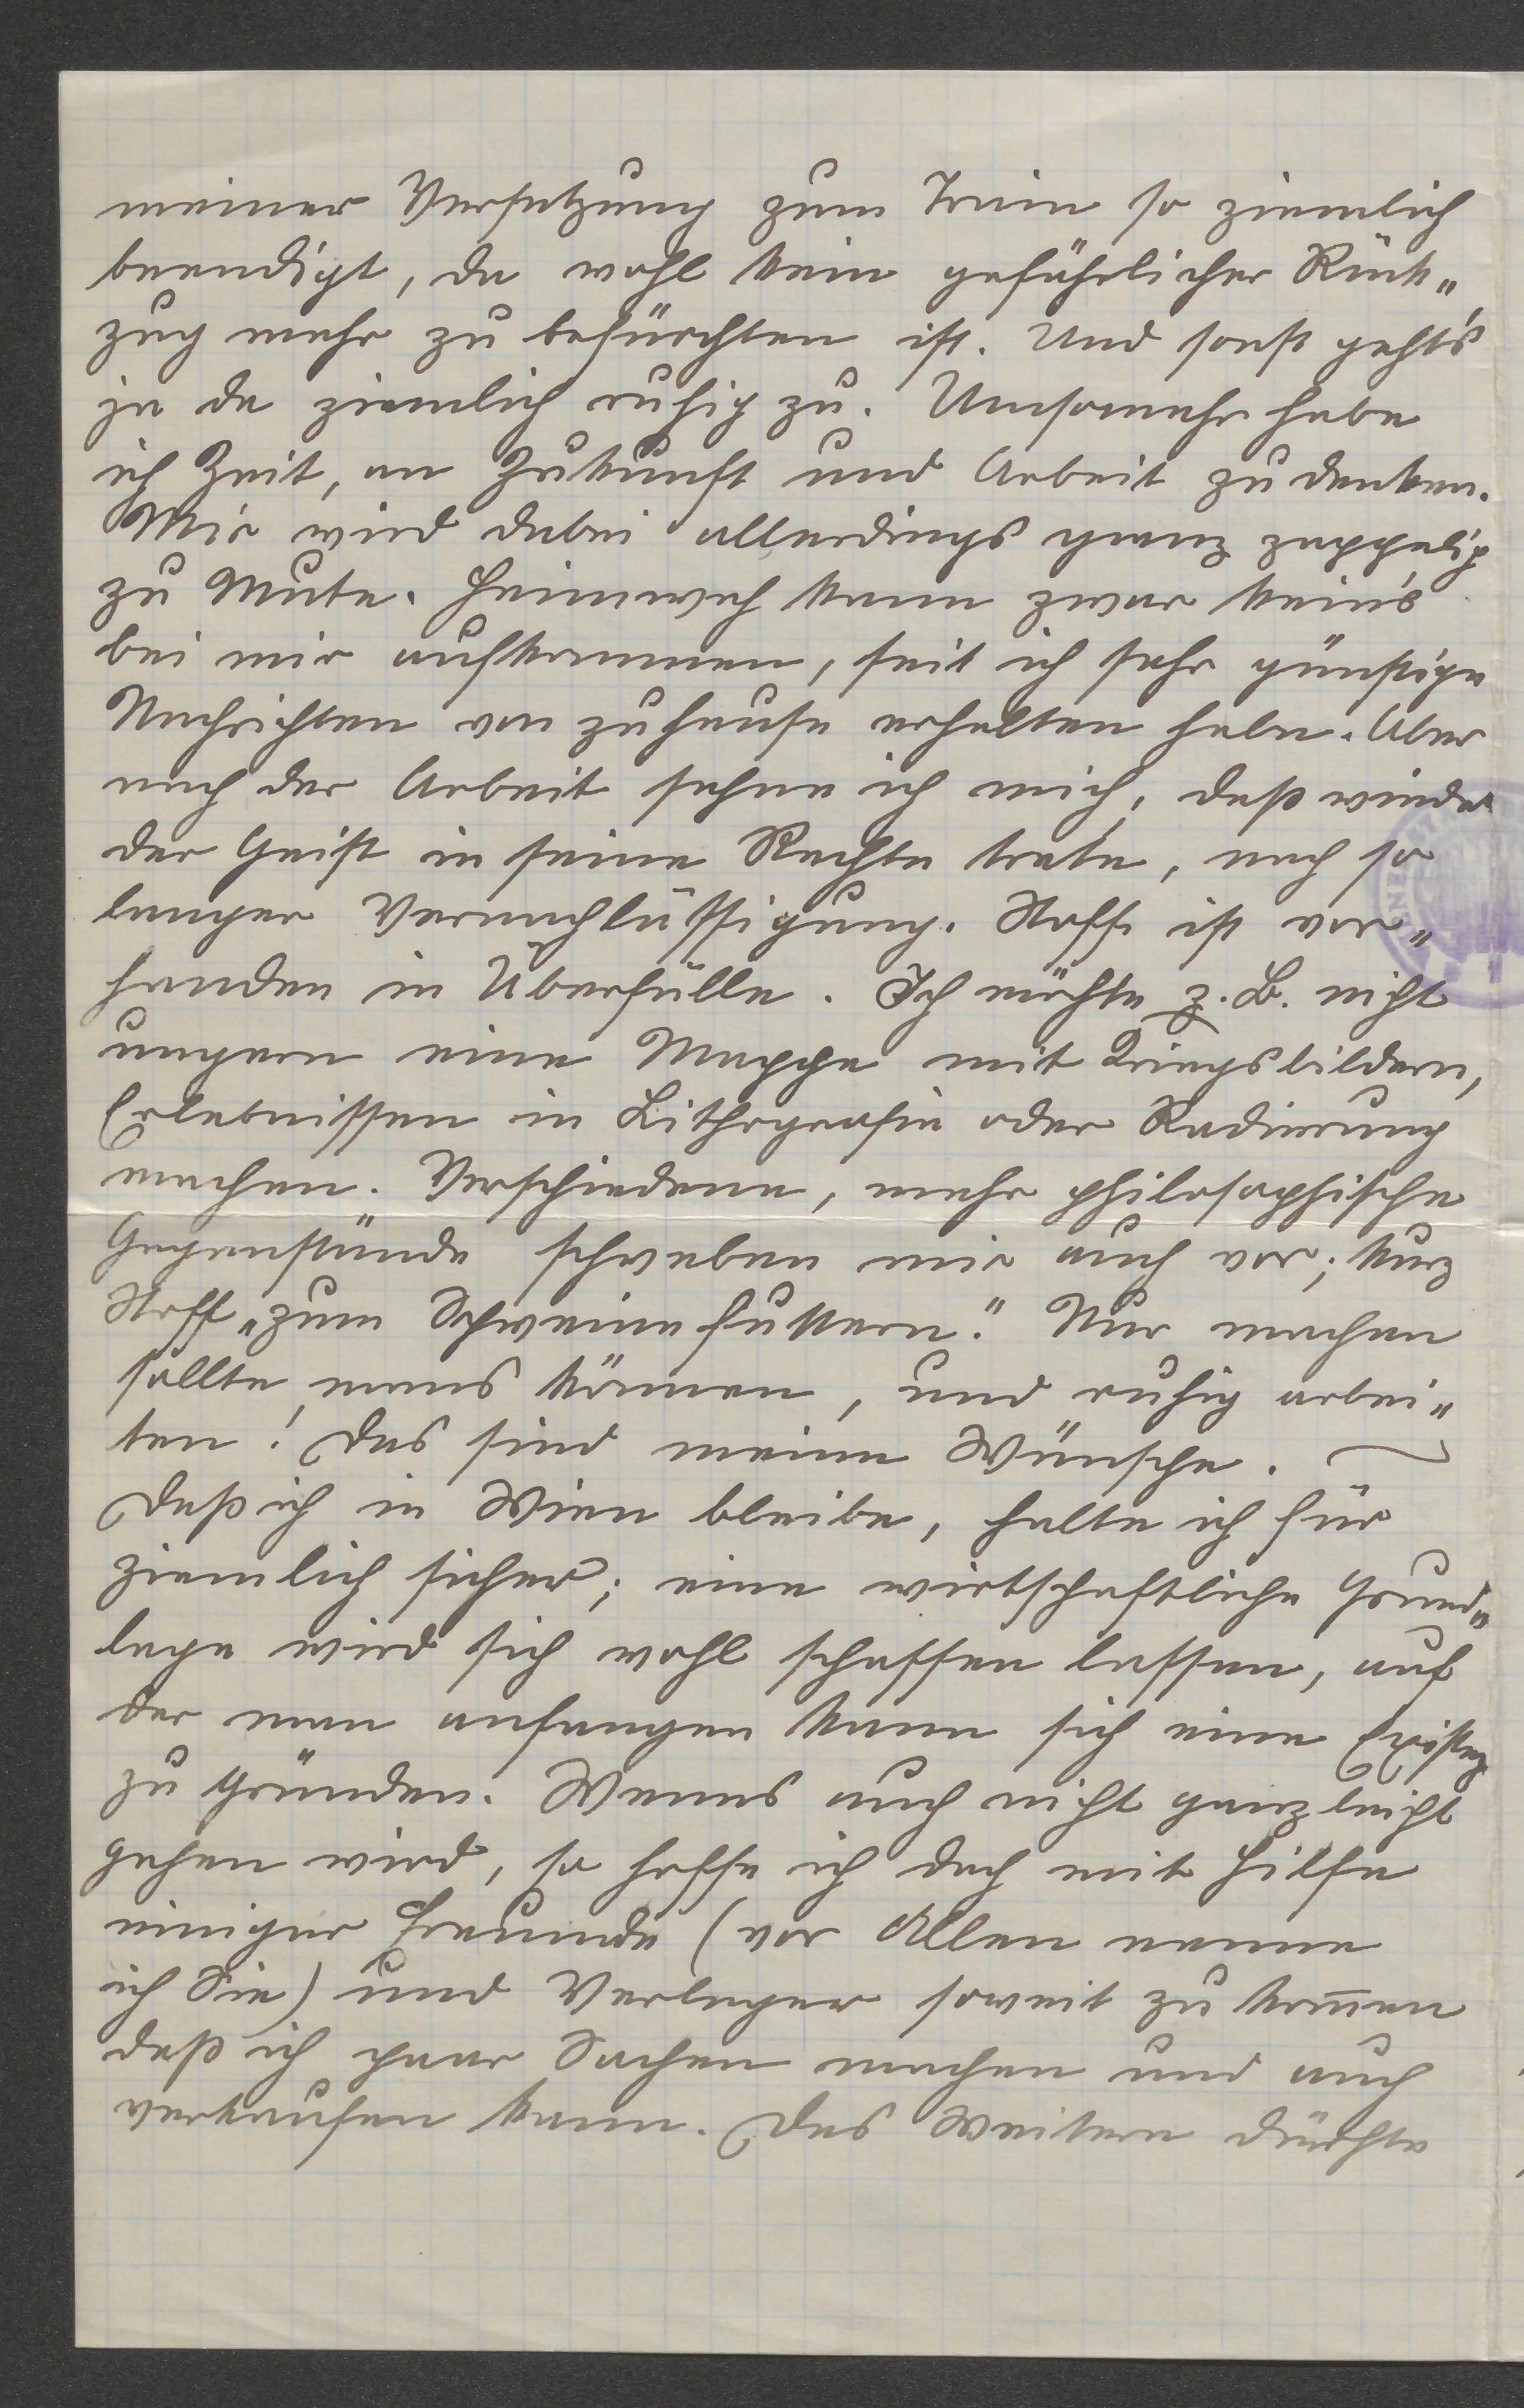 meiner Versetzung zum Train so ziemlich
beendigt, da wohl kein gefährlicher Rück„
zug mehr zu befürchten ist. Und sonst geht's
ja da ziemlich ruhig zu. Umsomehr habe
ich Zeit, an Zukunft und Arbeit zu denken.
Mir wird dabei allerdings ganz zappelig
zu Mute. Heimweh kann zwar kein's
bei mir aufkommen, seit ich sehr günstige
Nachrichten von zuhause erhalten habe. Aber
nach der Arbeit sehne ich mich, daß wieder
der Geist in seine Rechte trete, nach so
langer Vernachlässigung. Stoff ist vor„
handen in Überfülle. Ich möchte z. B. nicht
ungern eine Mappe mit Kriegsbildern,
Erlebnissen in Lithografie oder Radierung
machen. Verschiedene, mehr philosophische
Gegenstände schweben mir auch vor; kurz
Stoff „zum Schweinefuttern“. Nur machen
sollte mans können, und ruhig arbei„
ten! Das sind meine Wünsche. —
Daß ich in Wien bleibe, halte ich für
ziemlich sicher; eine wirtschaftliche Grund„
lage wird sich wohl schaffen lassen, auf
der man anfangen kann sich eine Existenz
zu gründen. Wenns auch nicht ganz leicht
gehen wird, so hoffe ich doch mit Hilfe
einiger Freunde (vor Allen nenne
ich Sie) und Verleger soweit zu kom̅en
daß ich paar Sachen machen und auch
verkaufen kann. Das Weitere dürfte